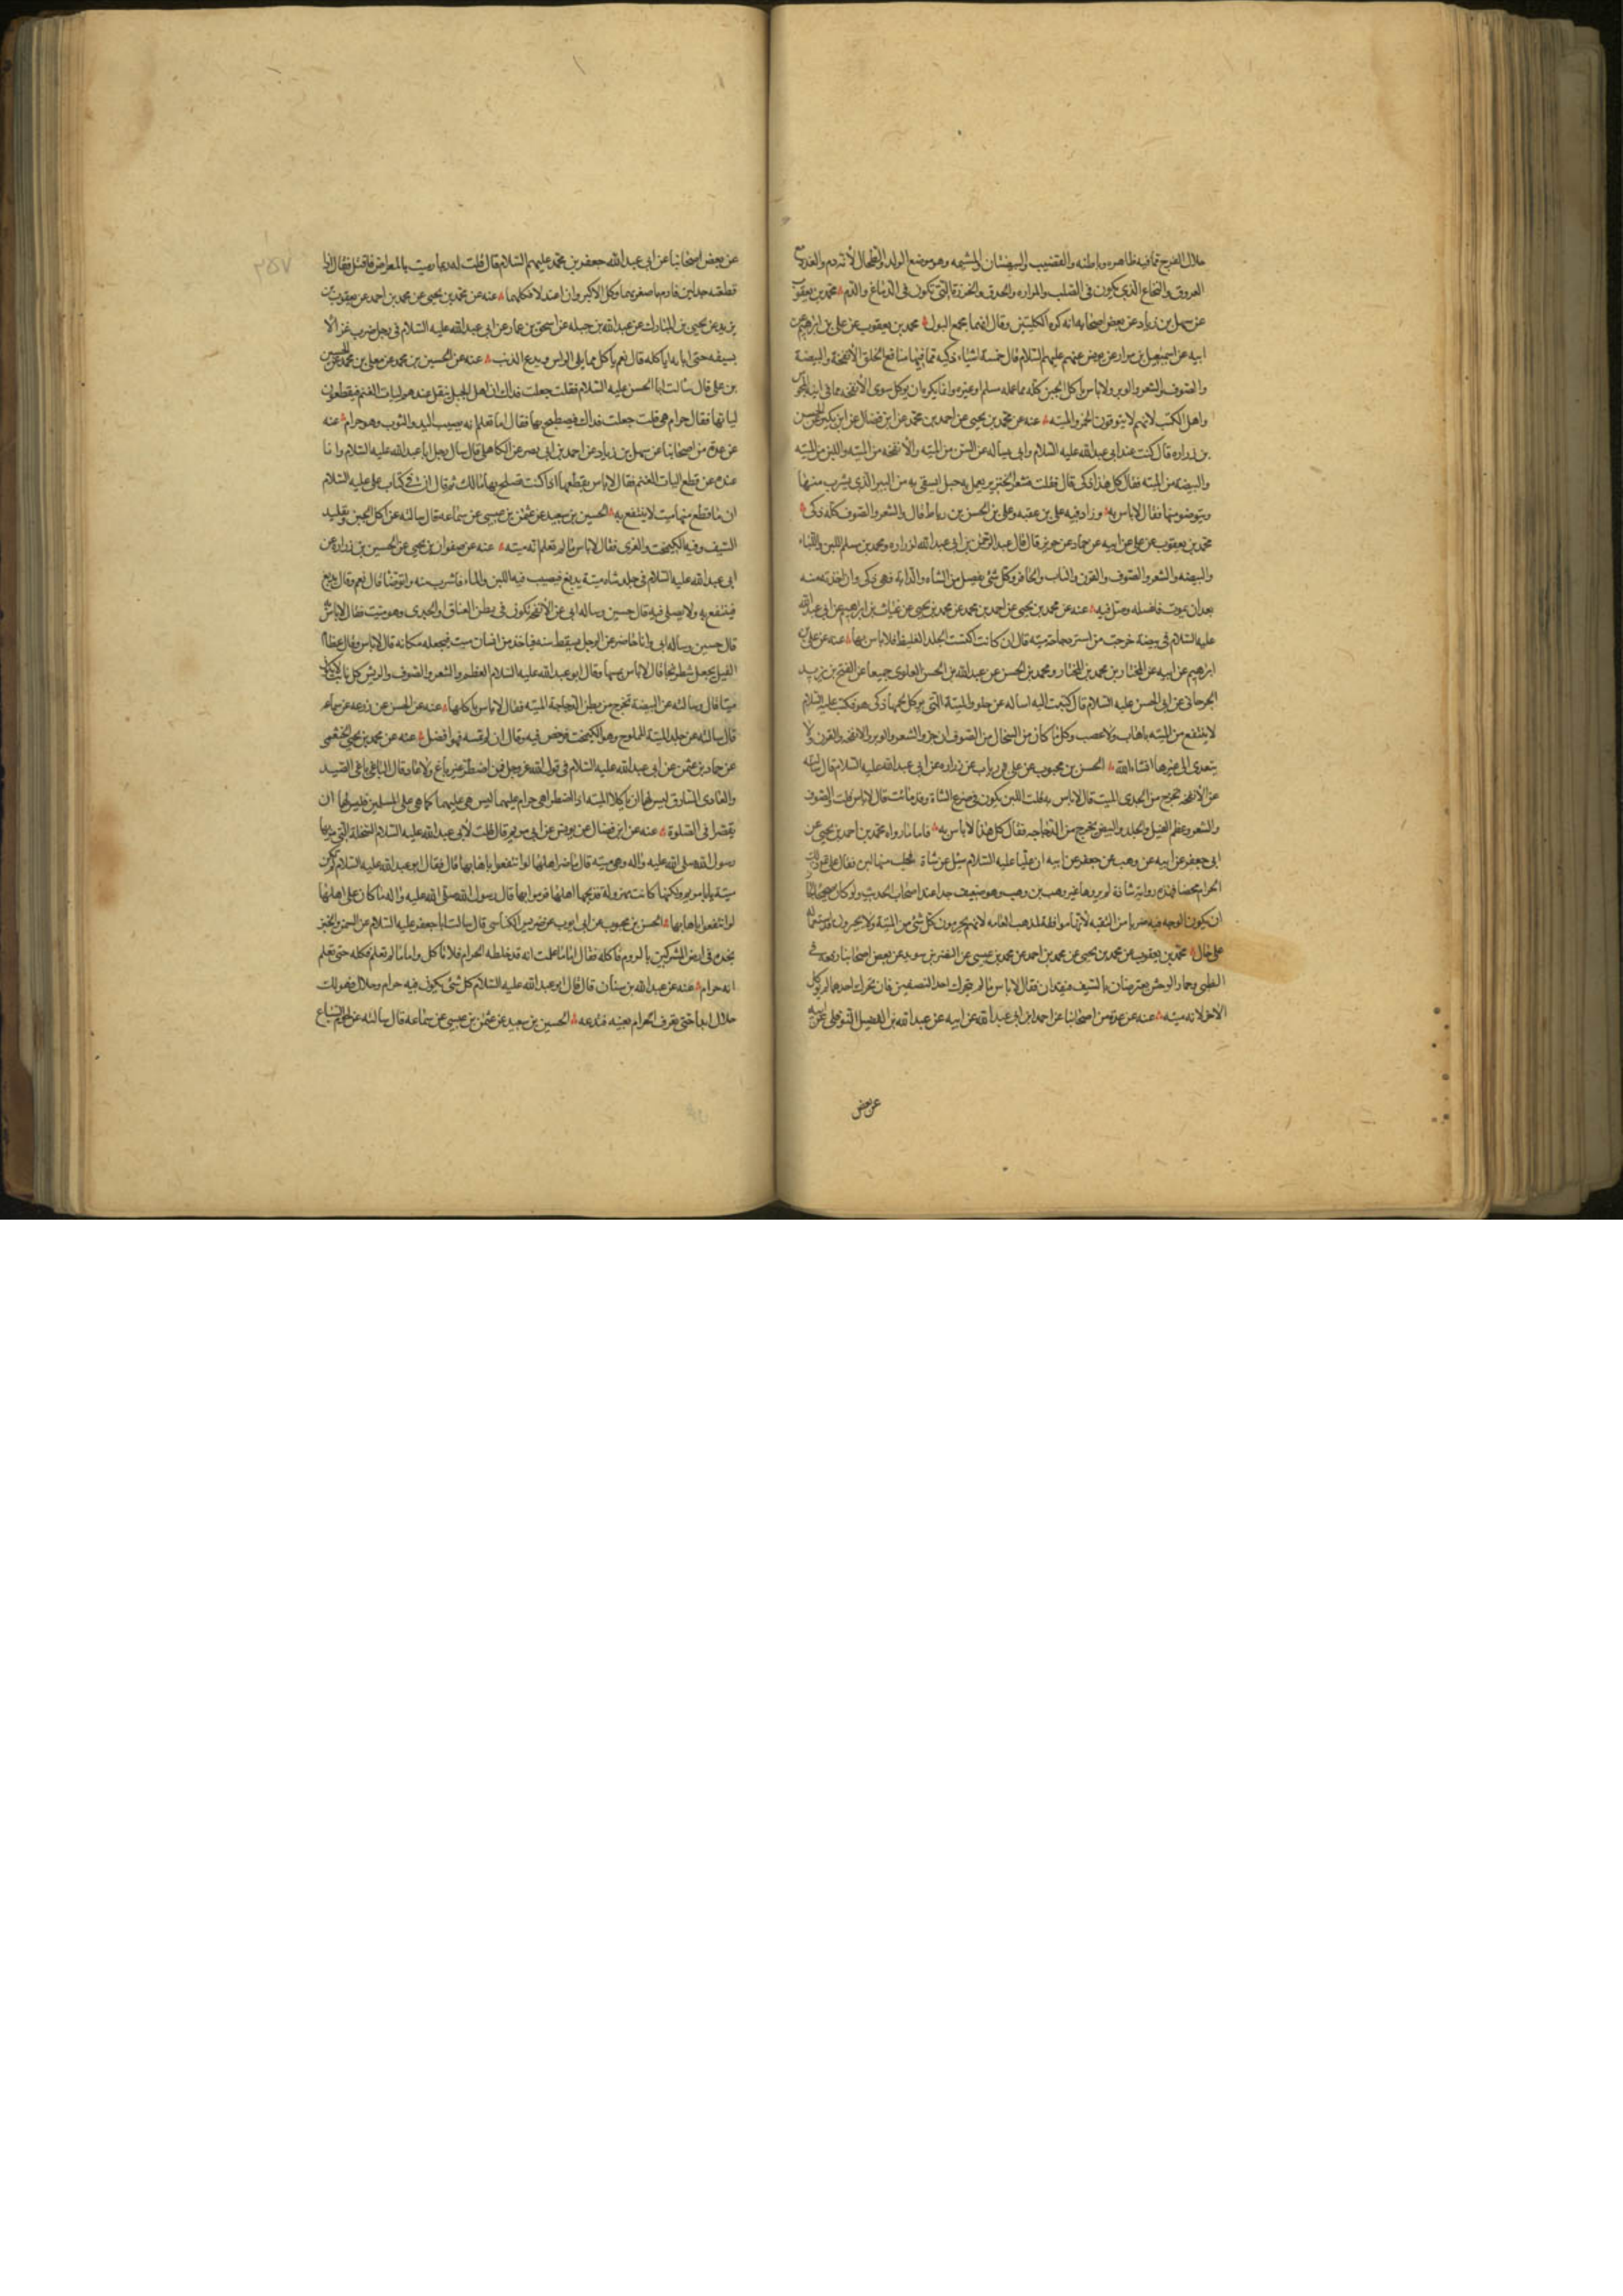 حلال الفرج بما فيه ظاهره وباطنه والقضيب والبيضتان والمشيمه وهو موضع الولد والطحال لأنه دم والغدد مع
العروق والنخاع الذي يكون في الصلب والمراره والحدق والخرزة التي تكون في الدماغ والدم محمد بن يعقوب
عن سهل بن زياد عن بعض اصحابه انه كره الكليتين وقال انهما مجمع البول محمد بن يعقوب عن علي بن ابرهيم عن
ابيه عن اسمعيل بن مرار عن يونس عنهم عليهم السلام قال خمسة اشياء ذكيه مما فيها منافع الخلق الأنفخة والبيضة
والصوف والشعر والوبر ولا باس باكل الجبن كله مما عمله مسلم او غيره وانما يكره ان يوكل سوى الأنفخه مما في انيه المجوس
واهل الكتب لانهم لا يتوقون الخمر والميته عنه عن محمد بن يحيى عن احمد بن محمد عن ابن فضال عن ابن بكير عن الحسين
بن زراره قال كنت عند ابي عبد الله عليه السلام وابي يساله عن السن من الميته والأنفخه من الميته واللبن من الميته
والبيضه من الميته فقال كل هذا ذكي قال فقلت فشعر الخنزير يعمل به حبل يستقى به من البير الذي يشرب منها
ويتوضو منها فقال لا باس به وزاد فيه علي بن عقبه وعلي بن الحسن بن رباط قال والشعر والصوف كله ذكي
محمد بن يعقوب عن علي عن ابيه عن حماد عن حريز قال قال عبد الرحمن بن ابي عبد الله لزراره ومحمد بن مسلم اللبن واللباء
والبيضه والشعر والصوف والقرن والناب والحافر وكل شئ يفصل من الشاه والدابه فهي ذكي وان اخذته منه
بعد ان يموت فاغسله وصل فيه عنه عن محمد بن يحيى عن احمد بن محمد عن محمد بن يحيى عن غياث بن ابراهيم عن ابي عبد الله
عليه السلام في بيضة خرجت من است دجاجة ميته قال ان كانت اكتست الجلد الغليظ فلا باس بها عنه عن علي بن
ابراهيم عن ابيه عن المختار بن محمد بن المختار ومحمد بن الحسن عن عبد الله بن الحسن العلوي جميعا عن الفتح بن يزيد
الجرجاني عن ابي الحسن عليه السلام قال كتبت اليه اساله عن جلود الميتة التي يوكل لحمها ذكي هو فكتب عليه السلام
لا ينتفع من الميته باهاب ولا عصب وكل ما كان من السخال من الصوف ان جز والشعر والوبر والانفخه والقرن ولا
يتعدى الى غيرها انشاء الله الحسن بن محبوب عن علي بن رياب عن زراره عن ابي عبد الله عليه السلام قال سالته
عن الأنفخه تخرج من الجدي الميت قال لا باس به قلت اللبن يكون في ضرع الشاة وقد ماتت قال لا باس قلت والصوف
والشعر وعظم الفيل والجلد والبيض يخرج من الدجاجه فقال كل هذا لا باس به فاما ما رواه محمد بن احمد بن يحيى عن
ابي جعفر عن ابيه عن وهب عن جعفر عن ابيه ان عليا عليه السلام سئل عن شاة فحلب منها لبن فقال علي ذلك
الحرام محضا فهذه رواية شاذة لم يروها غير وهب بن وهب وهو ضعيف جدا عند اصحاب الحديث ولو كان صحيحا لجاز
ان يكون الوجه فيه ضربا من التقيه لأنها موافقة لمذهب العامه لانهم يحرمون كل شئ من الميتة ولا يجيزون استعماله
على حال محمد بن يعقوب عن محمد بن يحيى عن محمد بن احمد عن محمد بن عيسى عن النضر بن سويد عن بعض اصحابنا رفعه في
الظبي وحمار الوحش يعترضان بالسيف فيقدان فقال لا باس ما لم يتحرك احد النصفين فان تحرك احدهما لم يوكل
الاخر لانه ميته عنه عن عدة من اصحابنا عن احمد ابن ابي عبد الله عن ابيه عن عبد الله بن الفضيل النوفلي عن ابيه
عن بعض
٢٥٧
عن بعض اصحابنا عن ابي عبد الله جعفر بن محمد عليهم السلام قال قلت له ربما رميت بالمعراض فاقتل فقال اذا
قطعته جدلين فارم باصغرهما وكل الاكبر وان اعتدلا فكلهما عنه عن محمد بن يحيى عن محمد بن احمد عن يعقوب بن
يزيد عن يحيى بن المبارك عن عبد الله بن جبله عن اسحق بن عمار عن ابي عبد الله عليه السلام في رجل ضرب غزالا
بسيفه حتى ابانه اياكله قال نعم ياكل مما يلي الراس ويدع الذنب عنه عن الحسين بن محمد عن معلى بن محمد عن الحسن
بن علي قال سالت ابا الحسن عليه السلام فقلت جعلت فداك ان اهل الجبل يثقل عندهم اليات الغنم فيقطعون
لياتها فقال حرام هي قلت جعلت فداك فيصطبح بها فقال اما تعلم انه يصيب اليد والثوب وهو حرام عنه
عن عدة من اصحابنا عن سهل بن زياد عن احمد بن ابي نصر عن الكاهلي قال سال رجل ابا عبد الله عليه السلام وانا
عنده عن قطع اليات الغنم فقال لا باس بقطعها اذا كنت تصلح بها مالك ثم قال ان في كتاب علي عليه السلام
ان ما قطع منها ميت لا ينتفع به الحسين بن سعيد عن عثمن بن عيسى عن سماعه قال سالته عن اكل الجبن وتقليد
السيف وفيه الكيمخت والغرى فقال لا باس ما لم تعلم انه ميته عنه عن صفوان بن يحيى عن الحسين بن زراره عن
ابي عبد الله عليه السلام في جلد شاه ميتة يدبغ فيصب فيه اللبن والماء فاشرب منه واتوضا قال نعم وقال يدبغ
فينتفع به ولا يصلى فيه قال حسين وساله ابي عن الأنفخه تكون في بطن العناق او الجدي وهو ميت فقال لا باس
قال حسين وساله ابي وانا حاضر عن الرجل يسقط سنه فياخذ من انسان ميت فيجعله مكانه قال لا باس وقال عظام
الفيل يجعل شطرنجا قال لا باس بمسها وقال ابو عبد الله عليه السلام العظم والشعر والصوف والريش كل نابت لا يكون
ميتا قال وسالته عن البيضة تخرج من بطن الدجاجة الميته فقال لا باس باكلها عنه عن الحسن عن زرعه عن سماعه
قال سالته عن جلد الميتة المملوح وهو الكيمخت فرخص فيه وقال ان لم تمسه فهو افضل عنه عن محمد بن يحيى الخثعمي
عن حماد بن عثمن عن ابي عبد الله عليه السلام في قول الله عز وجل فمن اضطر غير باغ ولا عاد قال الباغي باغي الصيد
والعادي السارق ليس لهما ان ياكلا الميته اذا اضطرا هي حرام عليهما ليس هي عليهما كما هي على المسلمين وليس لهما ان
يقصرا في الصلوة عنه عن ابن فضال عن يونس عن ابي مريم قال قلت لأبي عبد الله عليه السلام السخلة التي مر بها
رسول الله صلى الله عليه واله وهي ميته قال ما ضر اهلها لو انتفعوا باهابها قال فقال ابو عبد الله عليه السلام لم تكن
ميتة يابا مريم ولكنها كانت مهزولة فذبحها اهلها فرموا بها فقال رسول الله صلى الله عليه واله ما كان على اهلها
لو انتفعوا باهابها الحسن بن محبوب عن ابي ايوب عن ضريس الكناسي قال سالت ابا جعفر عليه السلام عن السمن والجبن
نجده في ارض المشركين بالروم فناكله فقال اما ما علمت انه قد خلطه الحرام فلا تاكل واما ما لم تعلم فكله حتى تعلم
انه حرام عنه عن عبد الله بن سنان قال قال ابو عبد الله عليه السلام كل شئ يكون فيه حرام وحلال فهو لك
حلال ابدا حتى تعرف الحرام بعينه فتدعه الحسين بن سعيد عن عثمن بن عيسى عن سماعه قال سالته عن لحوم السباع